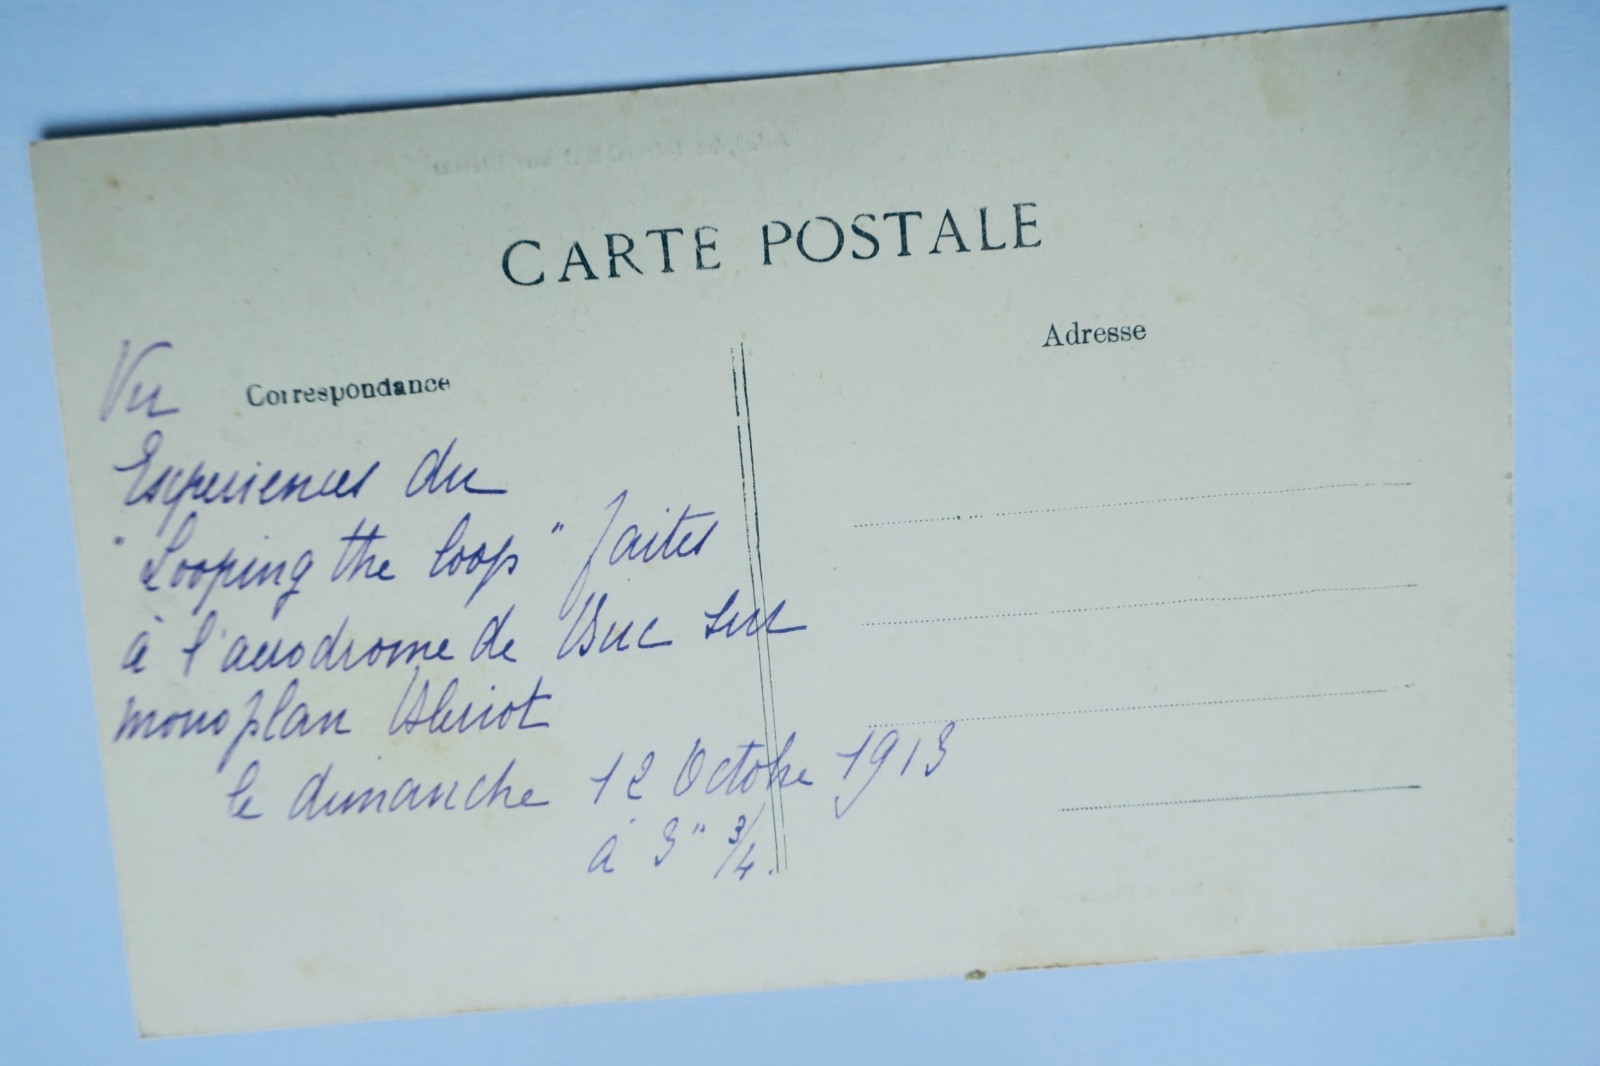 CARTE POSTALE
Correspondance
Adresse
Vu
Experiences du
"Looping the loop" faites
à l'aerodrome de Buc sur
monoplan Bleriot
le dimanche 12 Octobre 1913
à 3" 3/4.